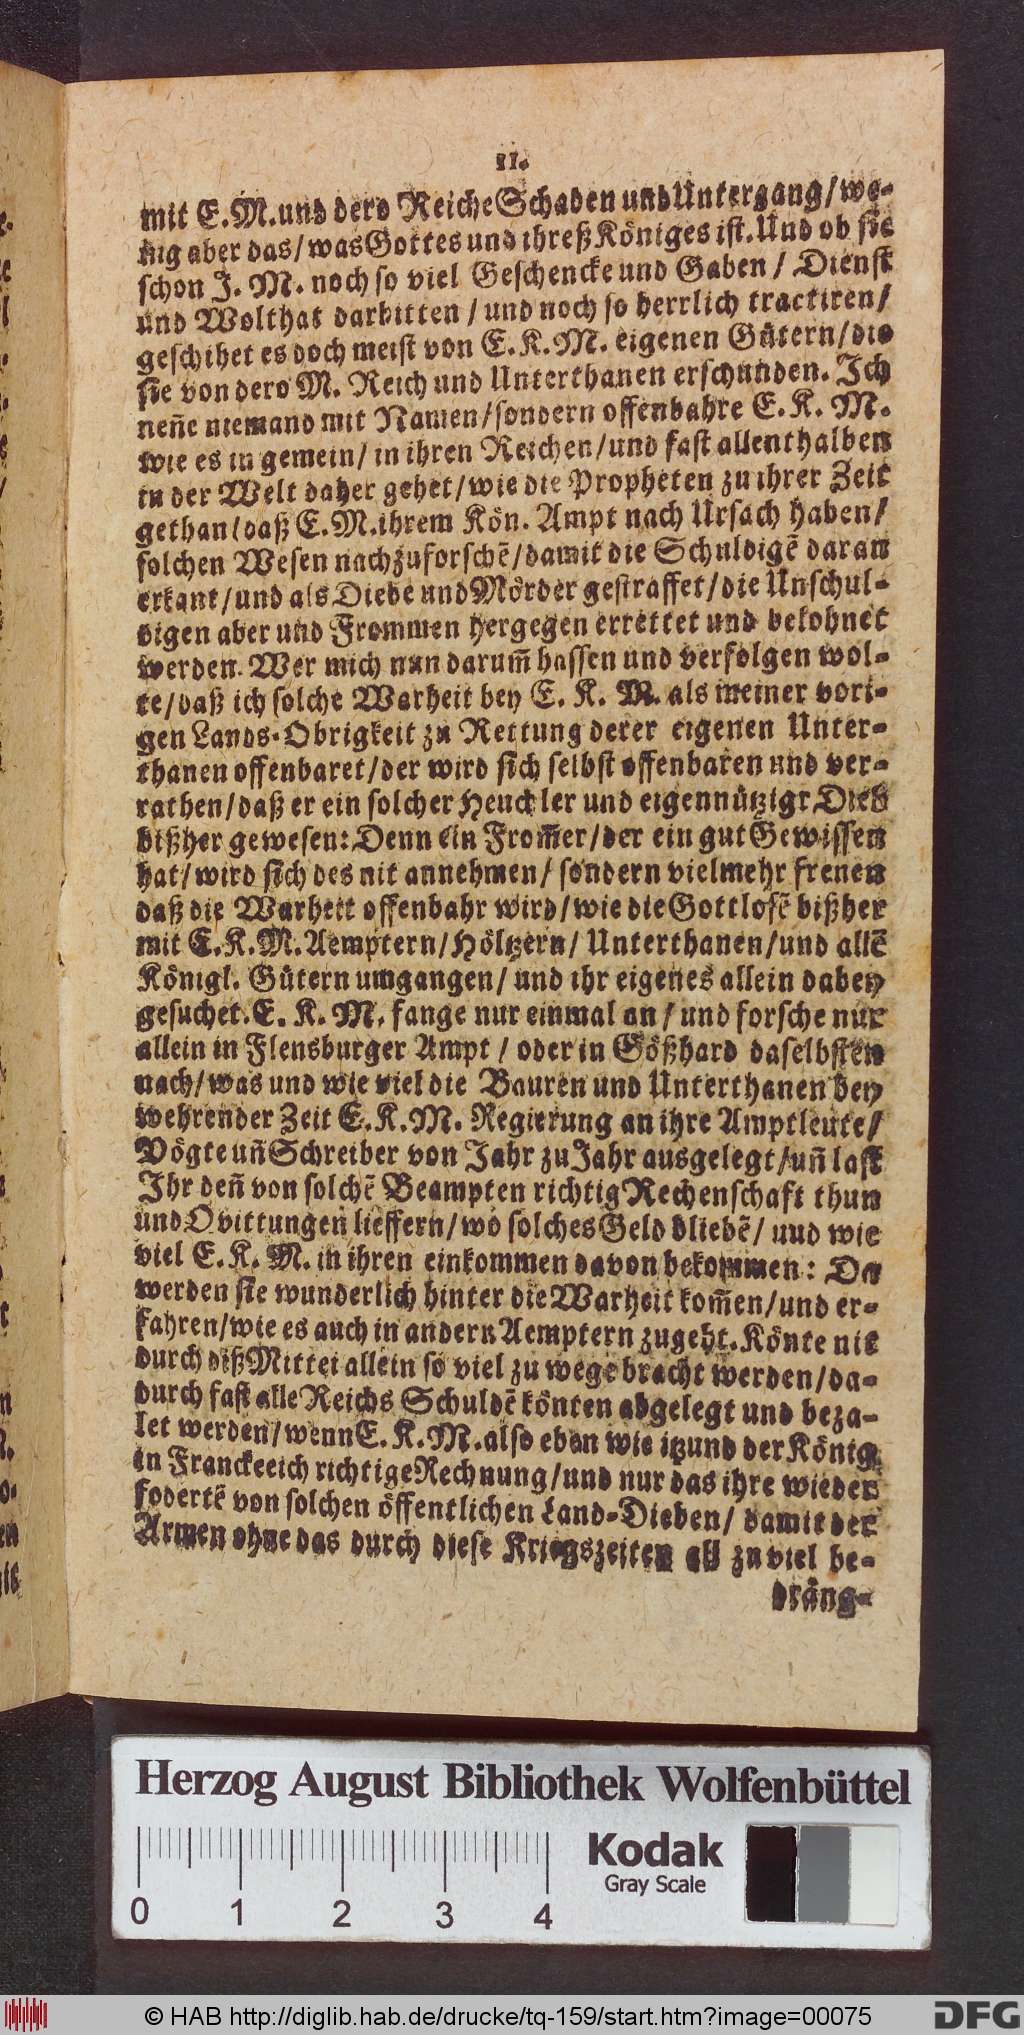 11.
mit E. M. und dero Reiche Schaden und Untergang/ we-
nig aber das/ was Gottes und ihreß Königes ist. Und ob sie
schon J. M. noch so viel Geschencke und Gaben/ Dienst
und Wolthat darbitten/ und noch so herrlich tractiren/
geschihet es doch meist von E. K. M. eigenen Gütern/ die
sie von dero M. Reich und Unterthanen erschunden. Ich
neñe niemand mit Namen/ sondern offenbahre E. K. M.
wie es in gemein/ in ihren Reichen/ und fast allenthalben
in der Welt daher gehet/ wie die Propheten zu ihrer Zeit
gethan/ daß E. M. ihrem Kön. Ampt nach Ursach haben/
solchen Wesen nachzuforschẽ/ damit die Schuldigẽ daran
erkant/ und als Diebe und Mörder gestraffet/ die Unschul-
digen aber und Frommen hergegen errettet und belohnet
werden. Wer mich nun darum̃ hassen und verfolgen wol-
te/ daß ich solche Warheit bey E. K. M. als meiner vori-
gen Lands-Obrigkeit zu Rettung derer eigenen Unter-
thanen offenbaret/ der wird sich selbst offenbaren und ver-
rathen/ daß er ein solcher Heuchler und eigennützigr Dieb
bißher gewesen: Denn ein From̃er/ der ein gut Gewissen
hat/ wird sich des nit annehmen/ sondern vielmehr frenen
daß die Warheit offenbahr wird/ wie die Gottlosẽ bißher
mit E. K. M. Aemptern/ Höltzern/ Unterthanen/ und allẽ
Königl. Gütern umgangen/ und ihr eigenes allein dabey
gesuchet. E. K. M. fange nur einmal an/ und forsche nur
allein in Flensburger Ampt/ oder in Gößhard daselbsten
nach/ was und wie viel die Bauren und Unterthanen bey
wehrender Zeit E. K. M. Regierung an ihre Amptleute/
Vögte uñ Schreiber von Jahr zu Jahr ausgelegt/ uñ last
Ihr deñ von solchẽ Beampten richtig Rechenschaft thun
und Qvittungen lieffern/ wo solches Geld bliebẽ/ uud wie
viel E. K. M. in ihren einkommen davon bekommen: Da
werden sie wunderlich hinter die Warheit kom̃en/ und er-
fahren/ wie es auch in andern Aemptern zugeht. Könte nit
durch diß Mittel allein so viel zu wege bracht werden/ da-
durch fast alle Reichs Schuldẽ könten abgelegt und beza-
let werden/ wenn E. K. M. also eben wie itzund der König
in Franckeeich richtige Rechnung/ und nur das ihre wieder
fodertẽ von solchen öffentlichen Land-Dieben/ damit der
Armen ohne das durch diese Kriegszeiten all zu viel be-
dräng-
Herzog August Bibliothek Wolfenbüttel
Kodak
Gray Scale
0 1 2 3 4
© HAB http://diglib.hab.de/drucke/tq-159/start.htm?image=00075
DFG